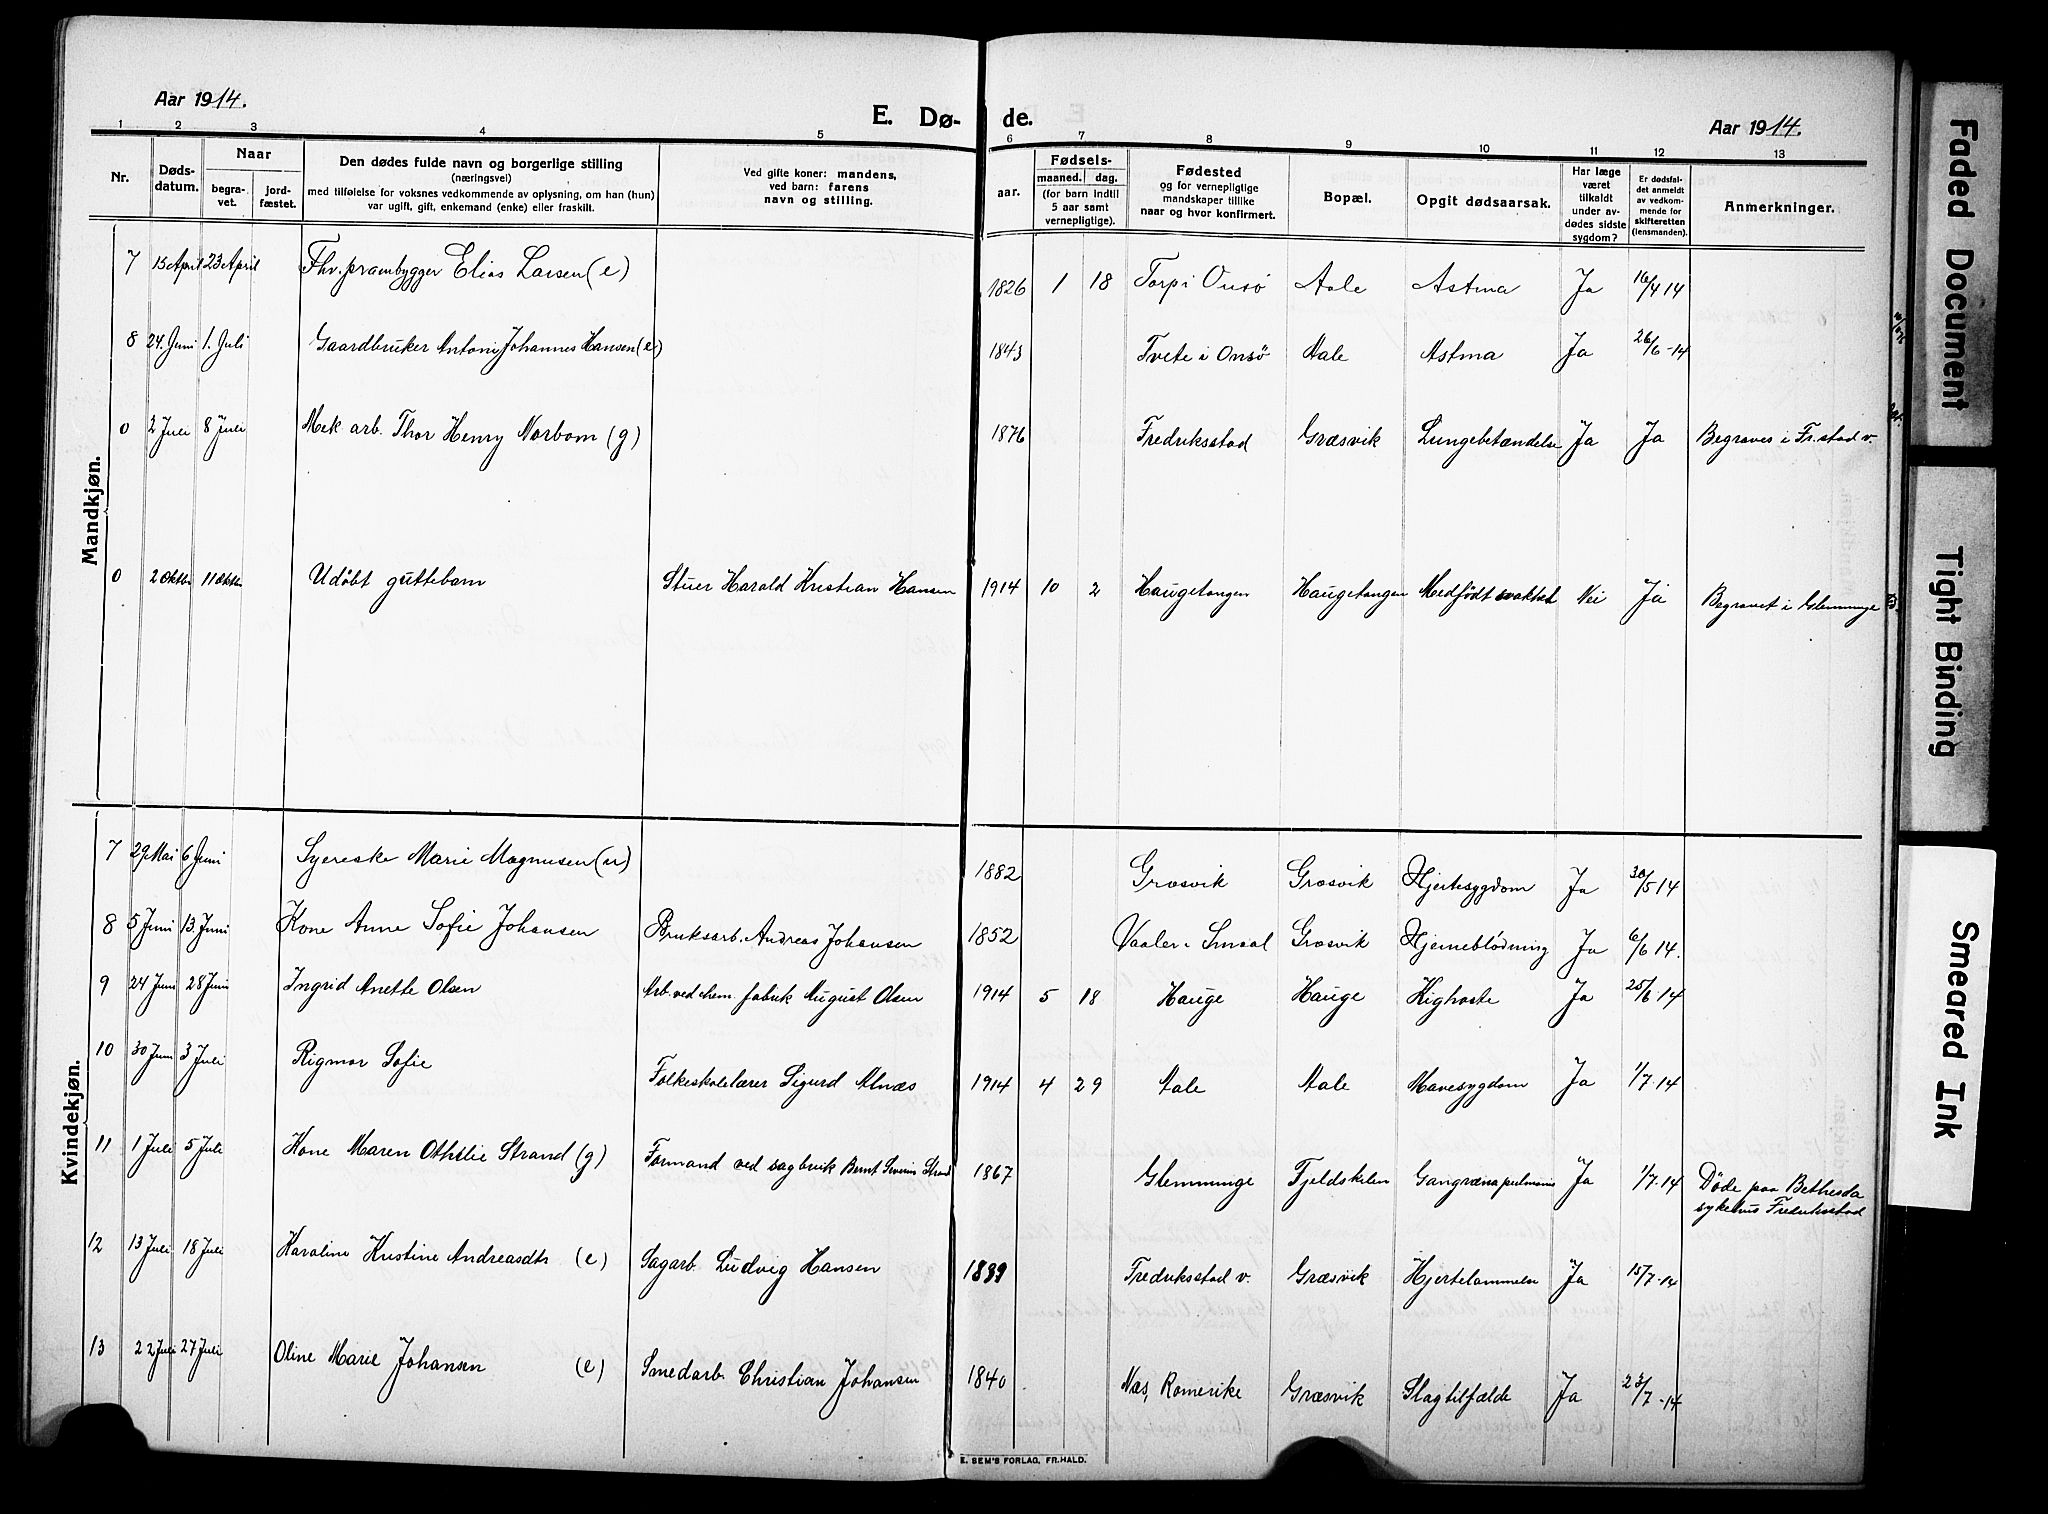 Aar 1914.
E. Dø-
de.
Aar 1914.
1 2 3 4 5 6 7 8 9 10 11 12 13
Nr.
Døds-
datum.
Naar
begra-
vet.
jord-
fæstet.
Den dødes fulde navn og borgerlige stilling
(næringsvei)
med tilføielse for voksnes vedkommende av oplysning, om han (hun)
var ugift, gift, enkemand (enke) eller fraskilt.
Ved gifte koner: mandens,
ved barn: farens
navn og stilling.
aar.
Fødsels-
maaned. dag.
(for barn indtil
5 aar samt
vernepligtige).
Fødested
og for vernepligtige
mandskaper tillike
naar og hvor konfirmert.
Bopæl.
Opgit dødsaarsak.
Har læge
været
tilkaldt
under av-
dødes sidste
sygdom?
Er dødsfal-
det anmeldt
av vedkom-
mende for
skifteretten
(lensmanden).
Anmerkninger.
Mandkjøn.
7 15 April 23 April Fhv. prambygger Elias Larsen (e) 1826 1 18 Torp i Onsø Aale Astma Ja 16/4 14
8 24. Juni 1. Juli Gaardbruker Anton Johannes Hansen (e) 1843 Tvete i Onsø Aale Astma Ja 26/6 - 14
0 2 Juli 8 Juli Mek. arb. Thor Henry Norbom (g) 1876 Fredriksstad Græsvik Lungebetændelse Ja Ja Begraves i Fr.stad v.
0 2 Oktbr 11 Oktbr Udøbt guttebarn Stuer Harald Kristian Hansen 1914 10 2 Haugetangen Haugetangen Medfödt svakhet Nei Ja Begravet i Glemminge
Kvindekjøn.
7 29 Mai 6 Juni Syerske Marie Magnusen (u) 1882 Græsvik Græsvik Hjertesygdom Ja 30/5 14
8 5 Juni 13. Juni Kone Anne Sofie Johansen Bruksarb. Andreas Johansen 1852 Vaaler i Smaal Græsvik Hjerneblödning Ja 6/6 14.
9 24 Juni 28 Juni Ingrid Anette Olsen Arb. ved chem. fabrik August Olsen 1914 5 18 Hauge Hauge Kighoste Ja 25/6 14
10 30 Juni 3 Juli Rigmor Sofie Folkeskolelærer Sigurd Alnæs 1914 4 29 Aale Aale Mavesygdom Ja 1/7. 14
11 1 Juli 5 Juli Kone Maren Othilie Strand (g) Formand ved sagbruk Bernt Severin Strand 1867 Glemminge Fjeldskelen Gangræna pulmonis Ja 1/7. 14 Døde paa Bethesda
sykehus Fredriksstad
12 13 Juli 18 Juli Karoline Kristine Andreasdtr (e) Sagarb. Ludvig Hansen Fredriksstad v. Græsvik Hjertelammelse Ja 15/7. 14
13 22 Juli 27 Juli Oline Marie Johansen (e) Smedarb. Christian Johansen 1840 Næs, Romerike Græsvik Slagtilfælde Ja 23/7 - 14
E. SEM'S FORLAG, FR.HALD.
Faded Document
Tight Binding
Smeared Ink